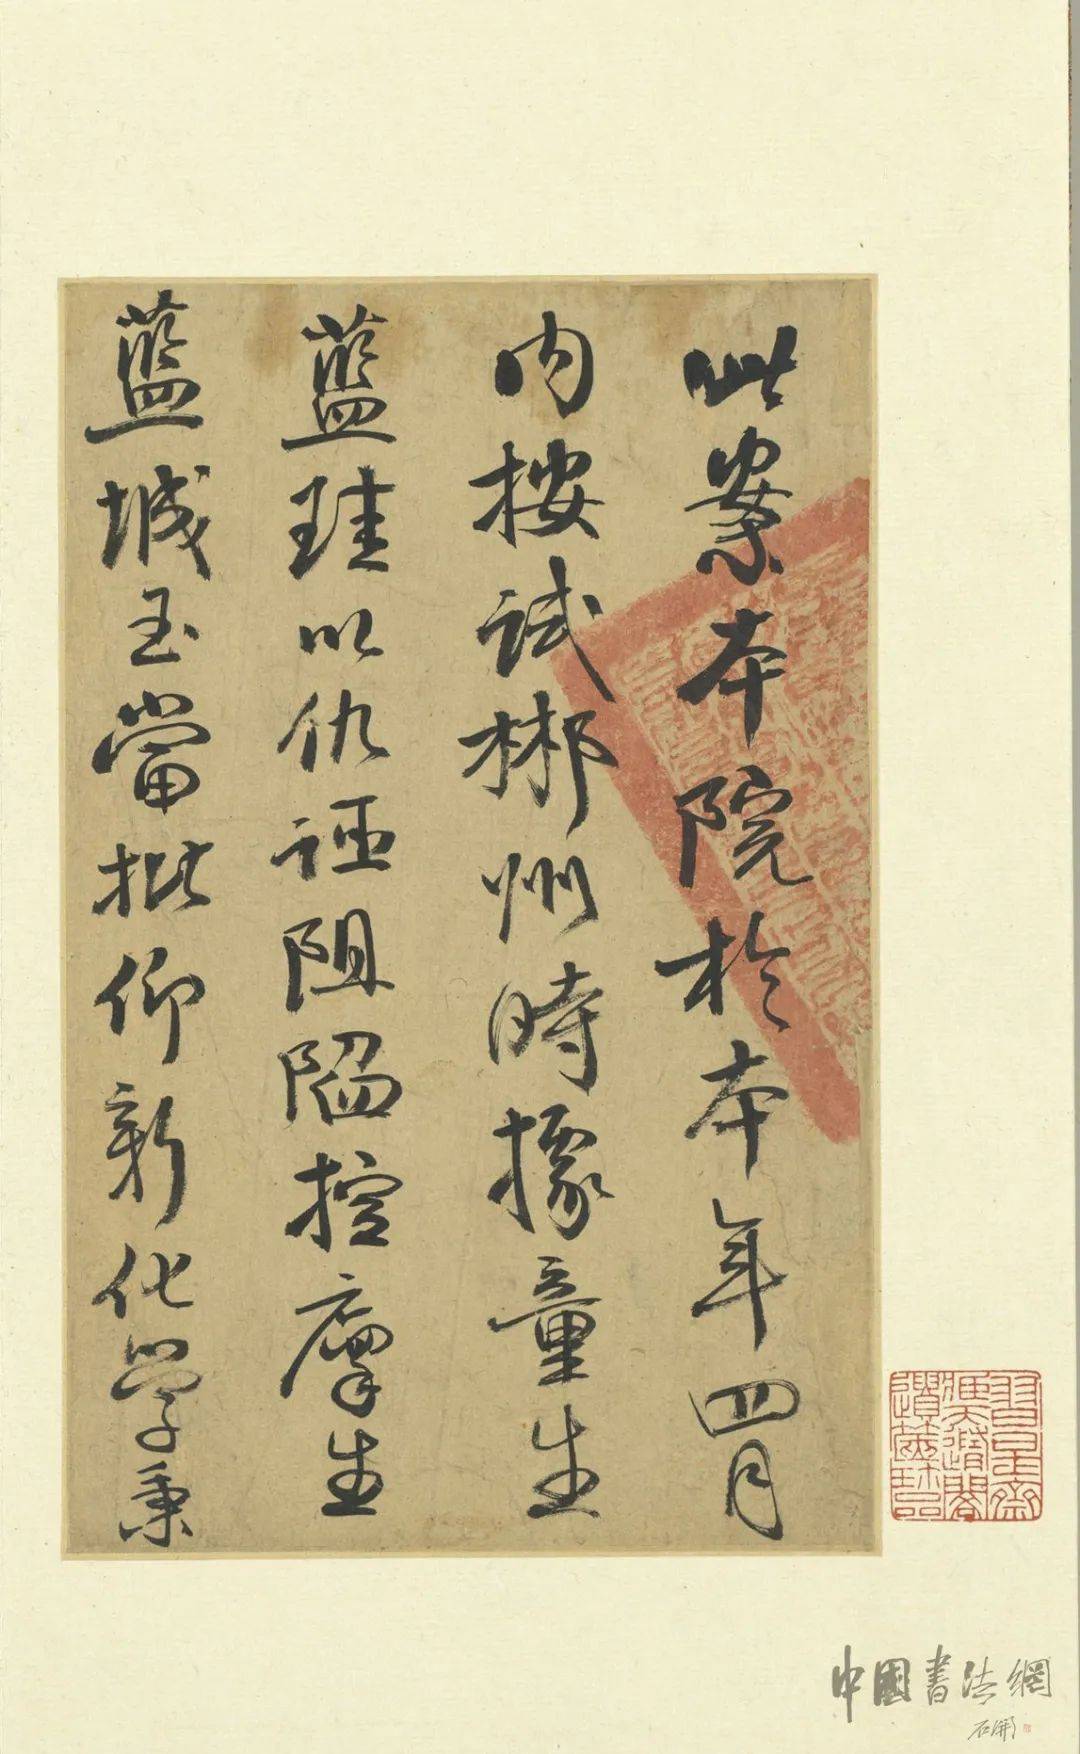 此案本院於本年四月
内按試郴州時據童生
藍珪以仇誣阻陷控廩生
藍城玉當批仰新化學秉
中國書法網
石開